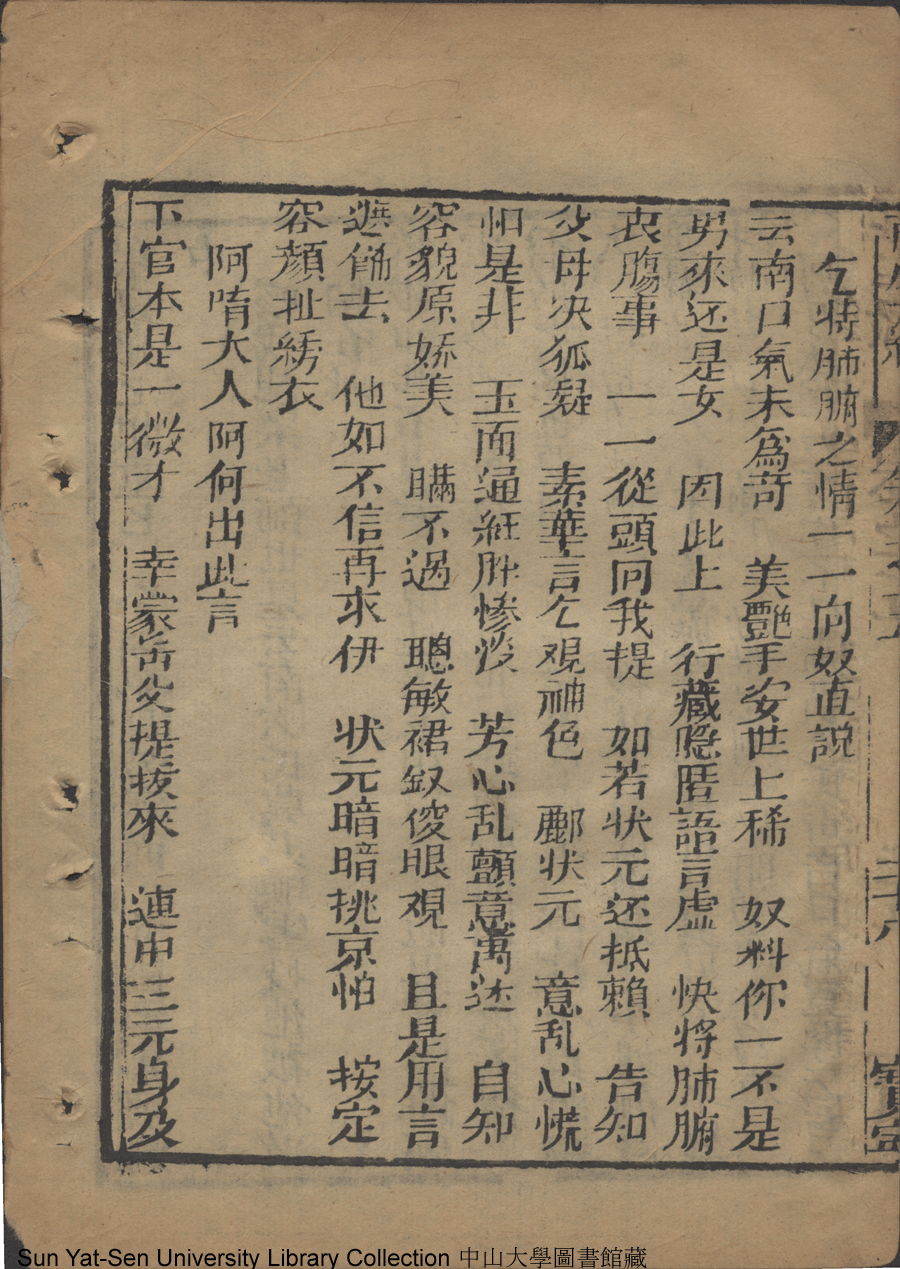 乞將肺腑之情一一向奴直説
云南口氣未為奇　美艷手姿世上稀　奴料你一不是
男來还是女　因此上　行藏隐匿語言虛　快将肺腑
衷膓事　一一從頭同我提　如若状元还抵賴　告知
父母决狐疑　素華言乞观神色　酈状元　意乱心慌
怕是非　玉面通紅胜惨淡　芳心乱顫意萬迷　自知
容貌原娇美　瞞不過　聰敏裙釵俊眼观　且是用言
遮俻去　他如不信再求伊　状元暗暗挑京怕　按定
容顏扯綉衣
阿唷大人阿何出此言
下官本是一微才　幸蒙岳父提拔來　連中三元身及
二十八
Sun Yat-Sen University Library Collection 中山大學圖書館藏